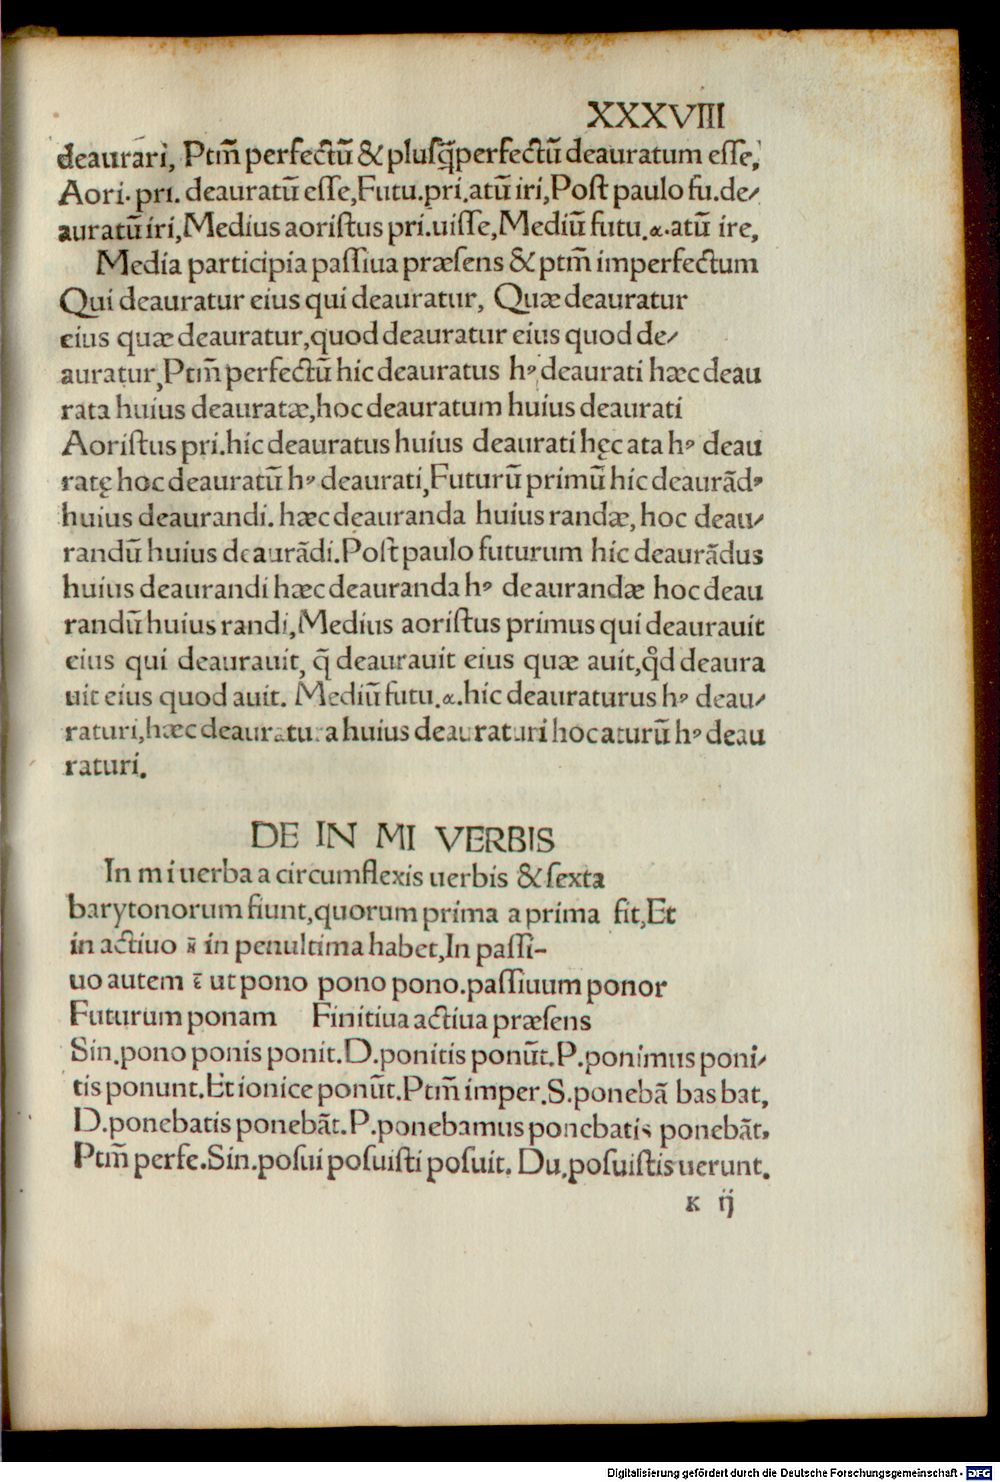 XXXVIII
deaurari, Ptm̄ perfectū & plusq̄perfectū deauratum esse,
Aori. pri. deauratū esse, Futu. pri. atū iri, Post paulo fu. de/
auratū iri, Medius aoristus pri. uisse, Mediū futu. α. atū ire,
Media participia passiua præsens & ptm̄ imperfectum
Qui deauratur eius qui deauratur, Quæ deauratur
eius quæ deauratur, quod deauratur eius quod de/
auratur, Ptm̄ perfectū hic deauratus hꝰ deaurati hæc deau
rata huius deauratæ, hoc deauratum huius deaurati
Aoristus pri. hic deauratus huius deaurati hęc ata hꝰ deau
ratę hoc deauratū hꝰ deaurati, Futurū primū hic deaurādꝰ
huius deaurandi. hæc deauranda huius randæ, hoc deau/
randū huius deaurādi. Post paulo futurum hic deaurādus
huius deaurandi hæc deauranda hꝰ deaurandæ hoc deau
randū huius randi, Medius aoristus primus qui deaurauit
eius qui deaurauit, q̄ deaurauit eius quæ auit, qd̛ deaura
uit eius quod auit. Mediū futu. α. hic deauraturus hꝰ deau/
raturi, hæc deauratura huius deauraturi hoc aturū hꝰ deau
raturi.
DE IN MI VERBIS
In mi uerba a circumflexis uerbis & sexta
barytonorum fiunt, quorum prima a prima fit, Et
in actiuo in penultima habet, In passi-
uo autem ε̄ ut pono pono pono. passiuum ponor
Futurum ponam Finitiua actiua præsens
Sin. pono ponis ponit. D. ponitis ponūt. P. ponimus poni/
tis ponunt. Et ionice ponūt. Ptm̄ imper. S. ponebā bas bat,
D. ponebatis ponebāt. P. ponebamus ponebatis ponebāt,
Ptm̄ perfe. Sin. posui posuisti posuit. Du. posuistis uerunt.
κ ij
Digitalisierung gefördert durch die Deutsche Forschungsgemeinschaft - DFG